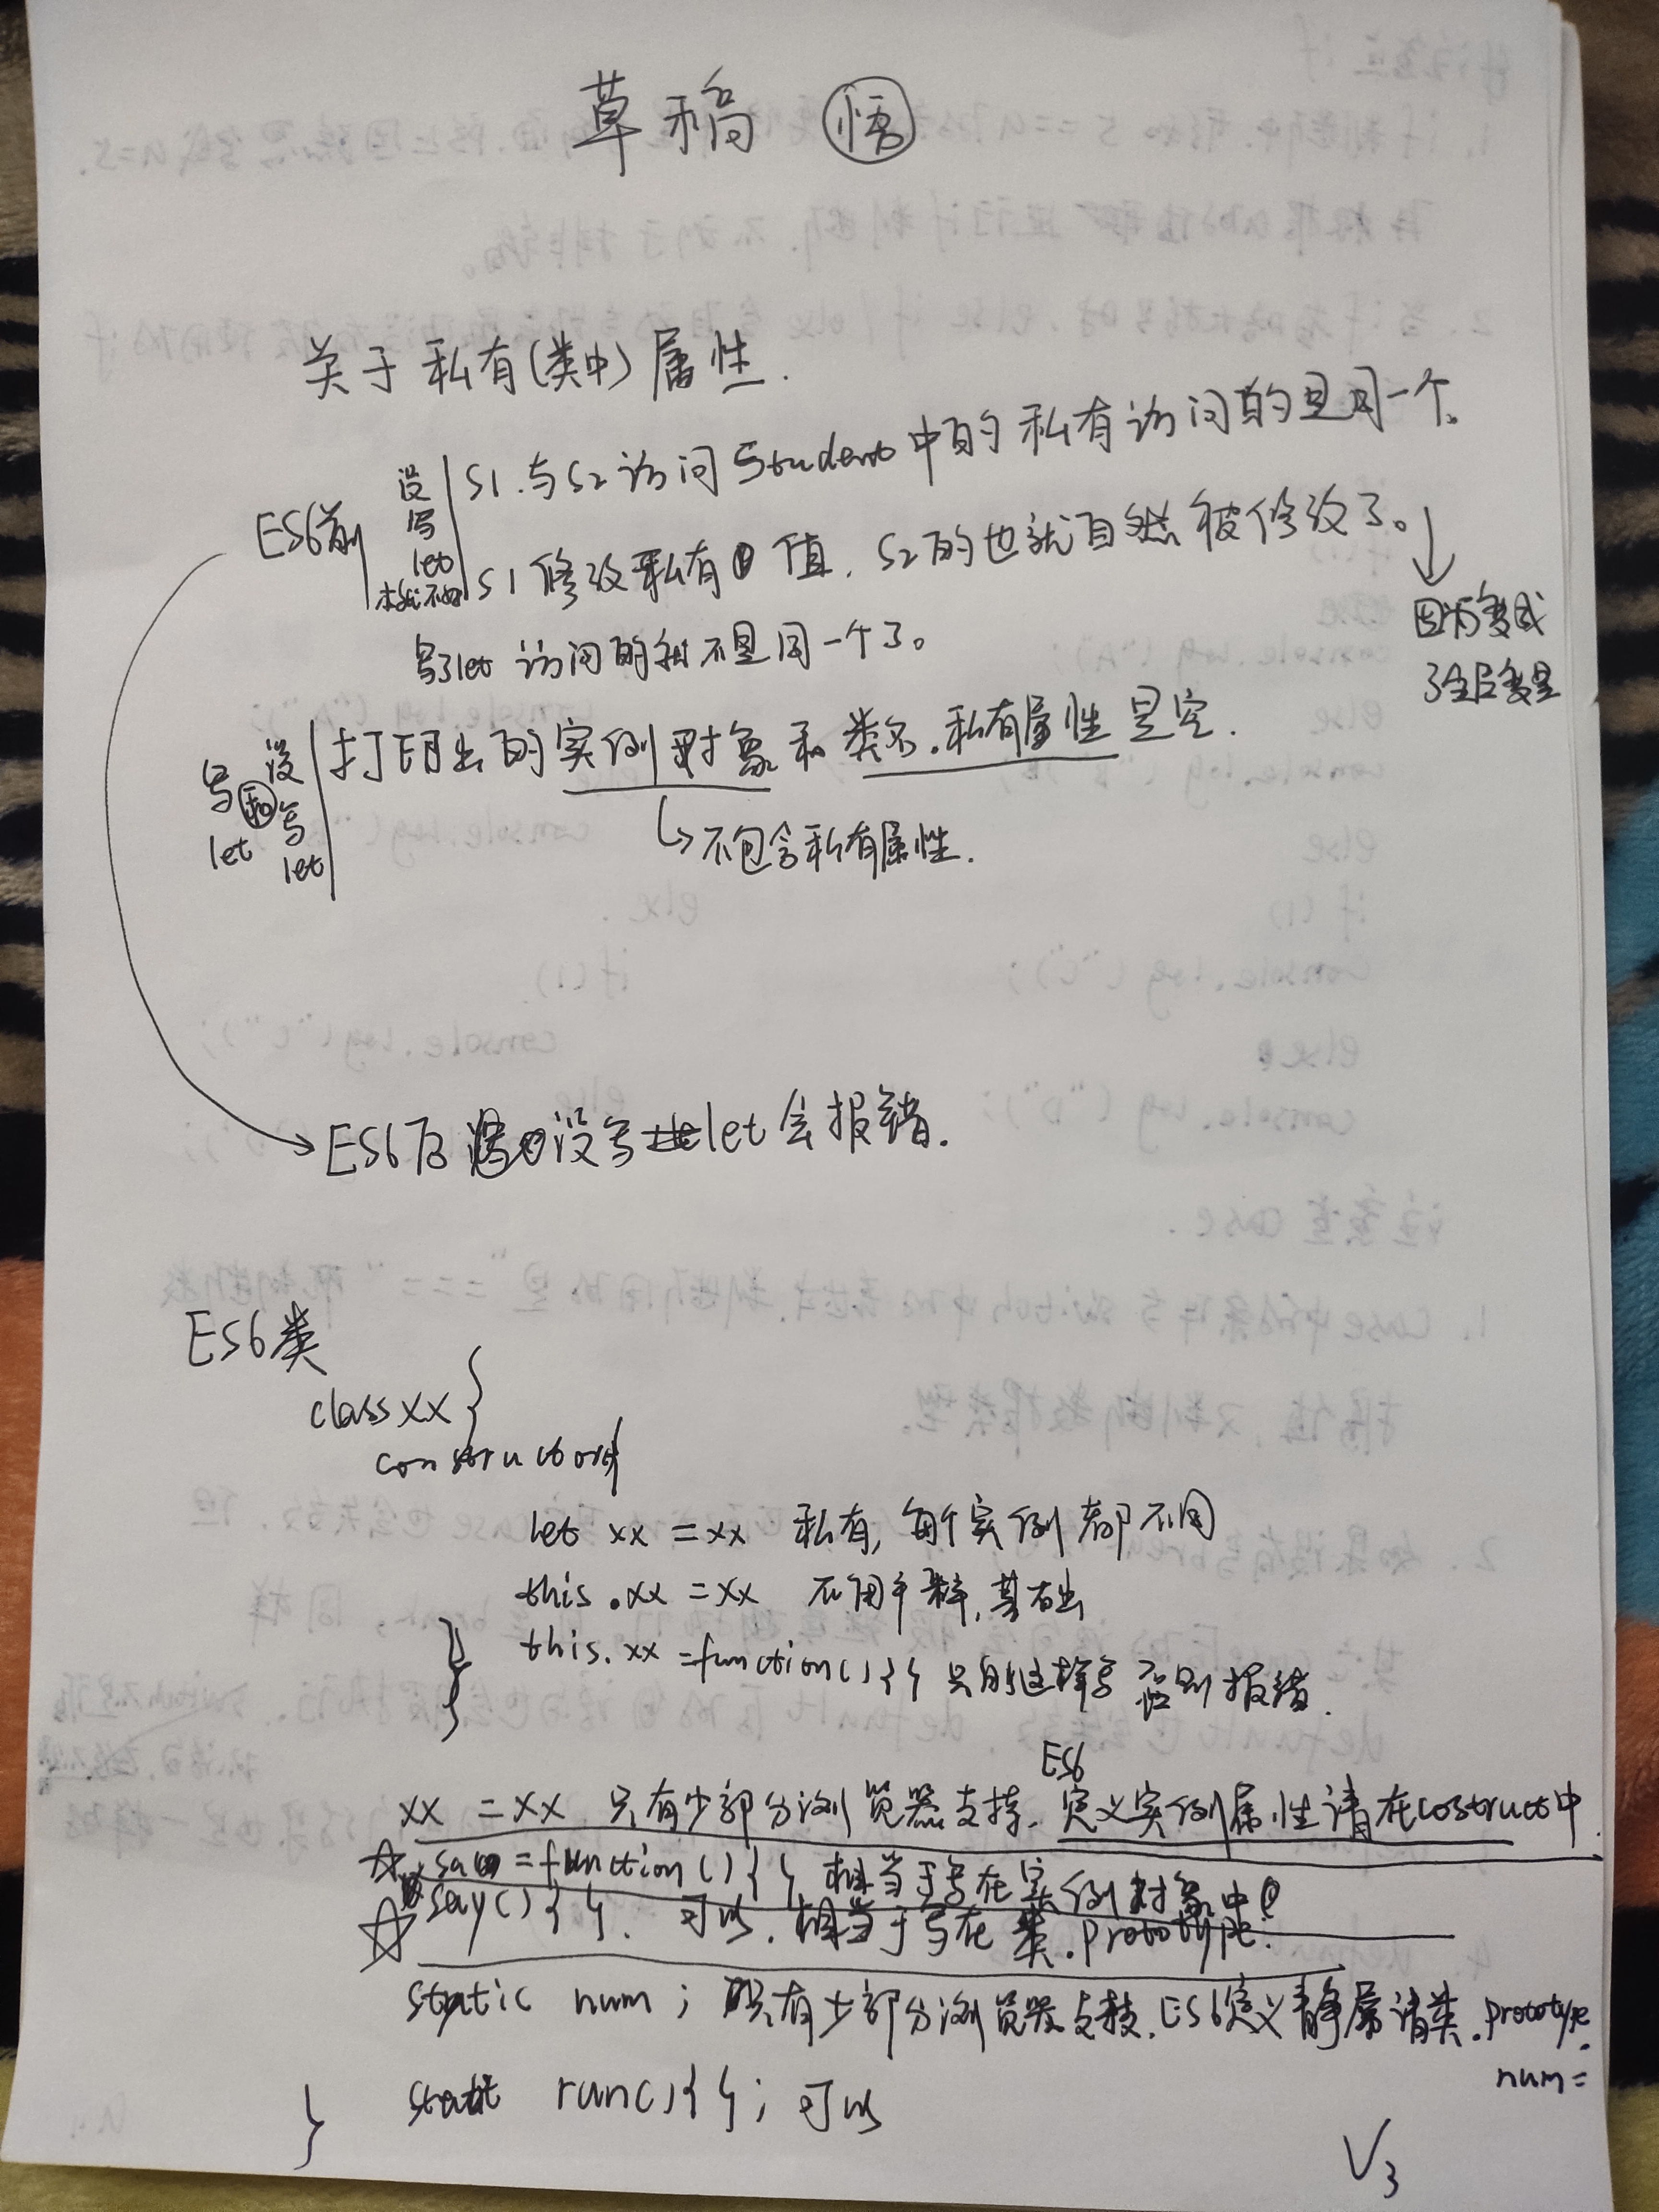 草稿 悟
关于私有(类中)属性.
ES6前 没写let
S1.与S2访问Student中的私有访问的是同一个。
S1修改私有值, S2的也就自然被修改了。
因为变成
了全局变量
写了let 访问的就不是同一个了。
写和没写let let
打印出的实例对象和类名.私有属性是空.
不包含私有属性.
ES6后 没写let会报错.
ES6类
class xx {
constructor{
let xx = xx 私有,每个实例都不同
this.xx = xx
this.xx =function(){} 只能这样写 否则报错.
}
xx = xx 只有少部分浏览器支持. ES6 定义实例属性请在costruct中.
☆ say =function(){} 相当于写在实例对象中
☆ say(){}. 可以, 相当于写在 类.prototype.
static num; 只有少部分浏览器支持. ES6定义静属请类.prototype.
num=
static run(){}; 可以
}
V3